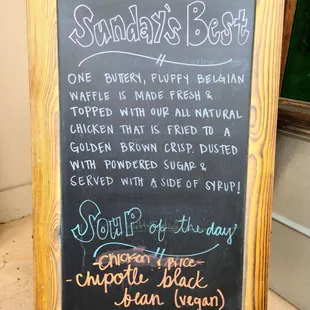 Sunday's Best
ONE BUTTERY, FLUFFY BELGIAN
WAFFLE IS MADE FRESH &
TOPPED WITH OUR ALL NATURAL
CHICKEN THAT IS FRIED TO A
GOLDEN BROWN CRISP. DUSTED
WITH POWDERED SUGAR &
SERVED WITH A SIDE OF SYRUP!
Soup of the day
-CHICKEN & RICE-
-chipotle black
bean (vegan)